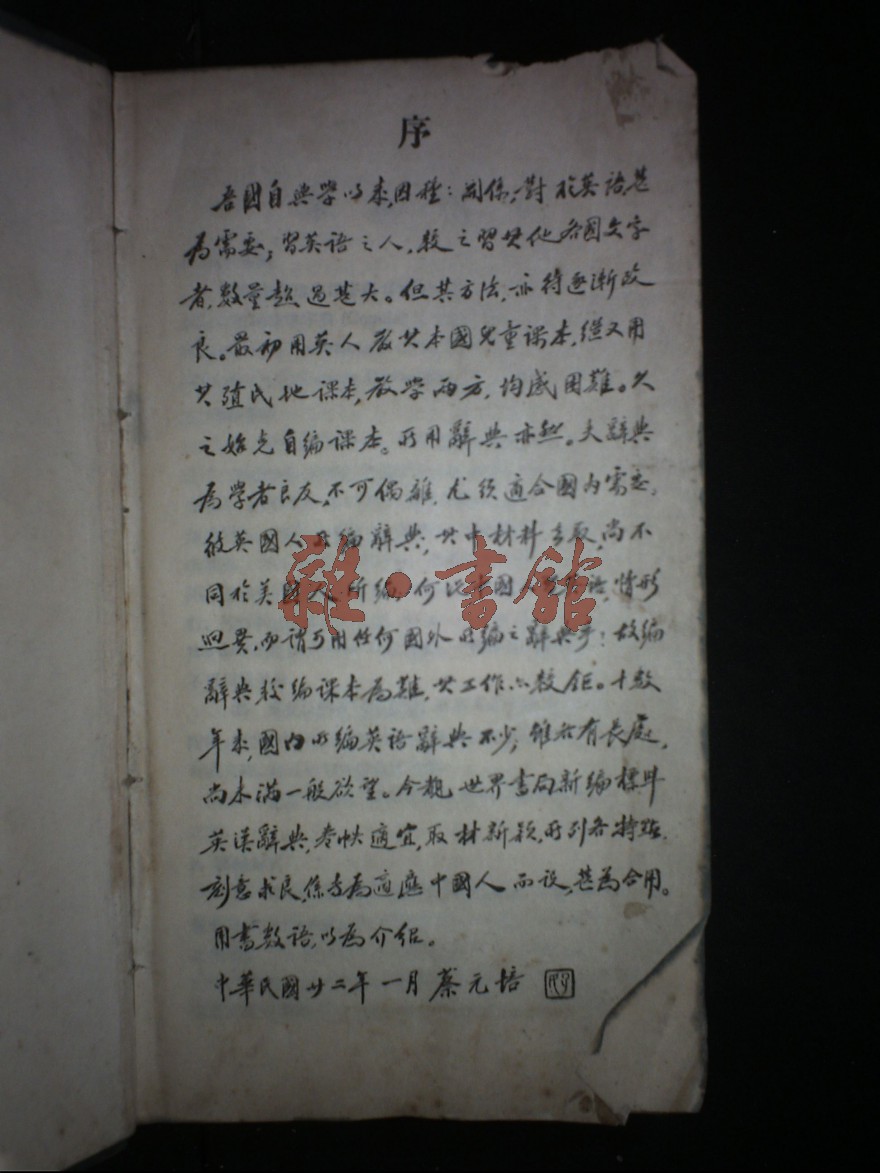 序
吾國自興學以來,因種:關係,對於英語,甚
為需要;習英語之人,較之習其他各國文字
者,數量超過甚大。但其方法,亦待逐漸改
良。最初用英人教其本國兒童課本,繼又用
其殖民地課本,教學兩方,均感困難。久
之始克自編課本。所用辭典亦然。夫辭典
為學者良友,不可偶離,尤須適合國內需要,
彼英國人所編辭典,其中材料去取,尚不
同於美國人所編,何況中國人習英語,情形
迥異,而謂可用任何國外所編之辭典乎!故編
辭典較編課本為難,其工作亦較鉅。十數
年來,國內所編英語辭典不少,雖各有長處,
尚未滿一般欲望。今觀世界書局新編標準
英漢辭典,卷帙適宜,取材新穎,所列各特點,
刻意求良,係專為適應中國人而設,甚為合用。
用書數語,以為介紹。
中華民國廿二年一月 蔡元培
雜·書館